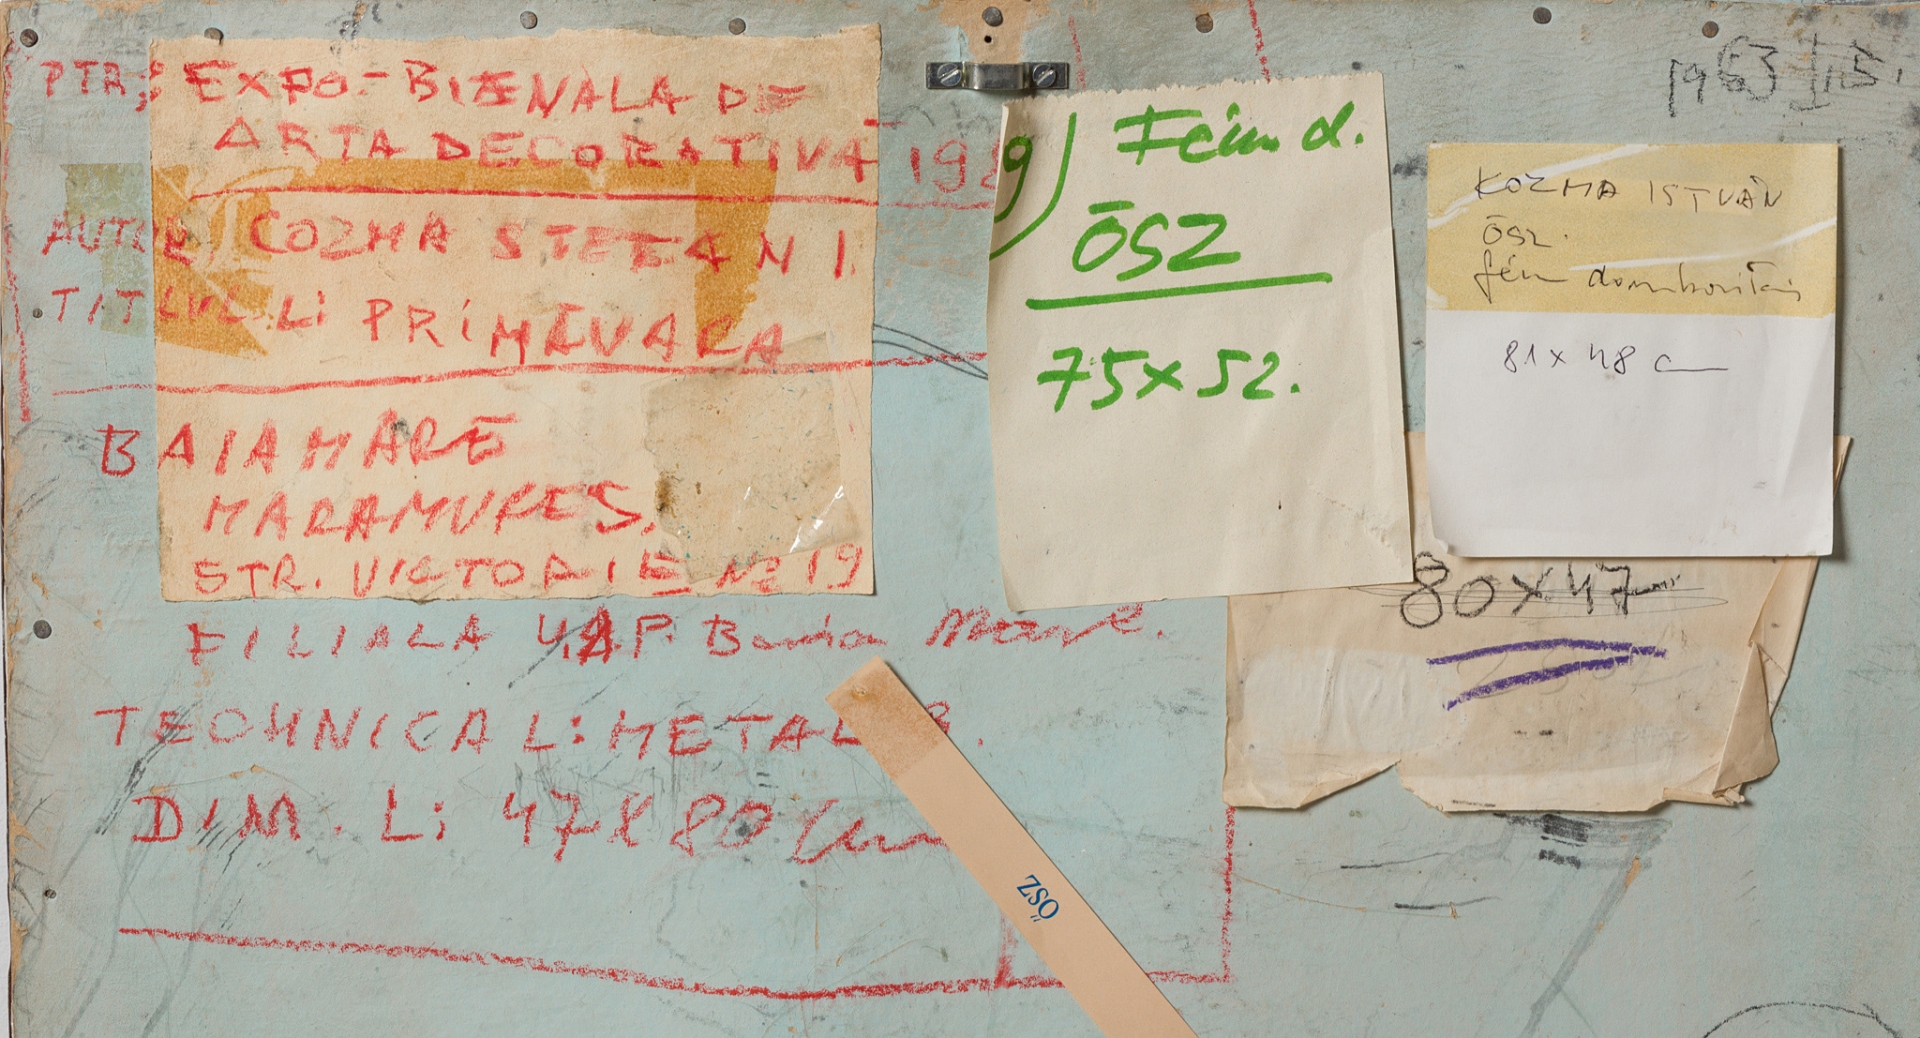 PTR; EXPO-BIENALA DE
ARTA DECORATIVĂ 198
AUTOR COZMA STEFAN I.
TITLUL L: PRIMĂVARA
BAIA MARE
MARAMUREŞ.
STR. VICTORIE No 19
FILIALA U.A.P. Baia Mare.
TECHNICA L: METAL
DIM. L: 47X80 cm
9)
Fém d.
ŐSZ
75x52.
1963
KOZMA ISTVÁN
ŐSZ.
fém domborítás
81x48 c
80x47
ŐSZ